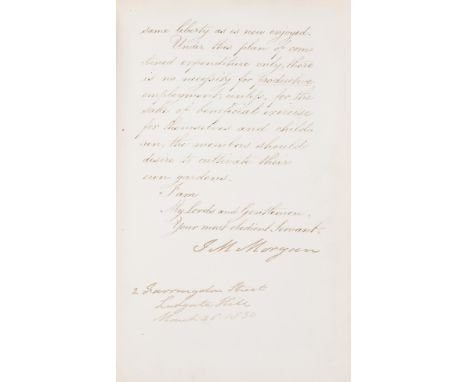 same liberty as is now enjoyed.
Under this plan of com
bined expenditure only, there
is no necessity for productive
employment, unless, for the
sake of beneficial exercise
for themselves and child
ren, the members should
desire to cultivate their
own gardens.
I am
My Lords and Gentlemen,
Your most obedient Servant
J M Morgan
2 Farringdon Street
Ludgate Hill
March 26 1830